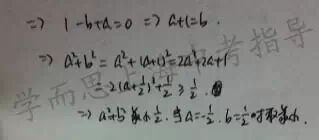 => 1-b+a=0 => a+1=b.
=> a²+b²=a²+(a+1)²=2a²+2a+1
=2(a+½)²+½≥½.
=> a²+b²最小½.当a=-½.b=½时取最小.
学而思上海中考指导